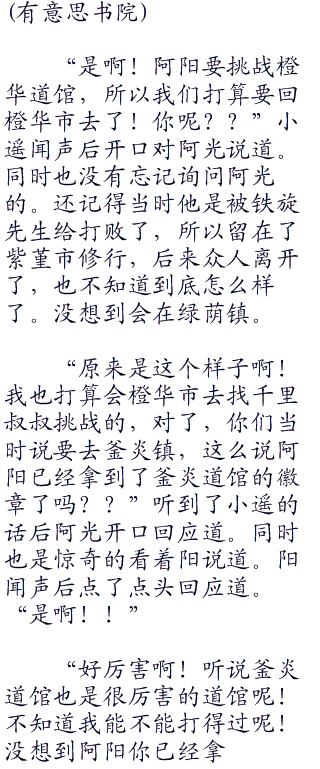 (有意思书院)
“是啊！阿阳要挑战橙
华道馆，所以我们打算要回
橙华市去了！你呢？？”小
遥闻声后开口对阿光说道。
同时也没有忘记询问阿光
的。还记得当时他是被铁旋
先生给打败了，所以留在了
紫堇市修行，后来众人离开
了，也不知道到底怎么样
了。没想到会在绿荫镇。
“原来是这个样子啊！
我也打算会橙华市去找千里
叔叔挑战的，对了，你们当
时说要去釜炎镇，这么说阿
阳已经拿到了釜炎道馆的徽
章了吗？？”听到了小遥的
话后阿光开口回应道。同时
也是惊奇的看着阳说道。阳
闻声后点了点头回应道。
“是啊！！”
“好厉害啊！听说釜炎
道馆也是很厉害的道馆呢！
不知道我能不能打得过呢！
没想到阿阳你已经拿